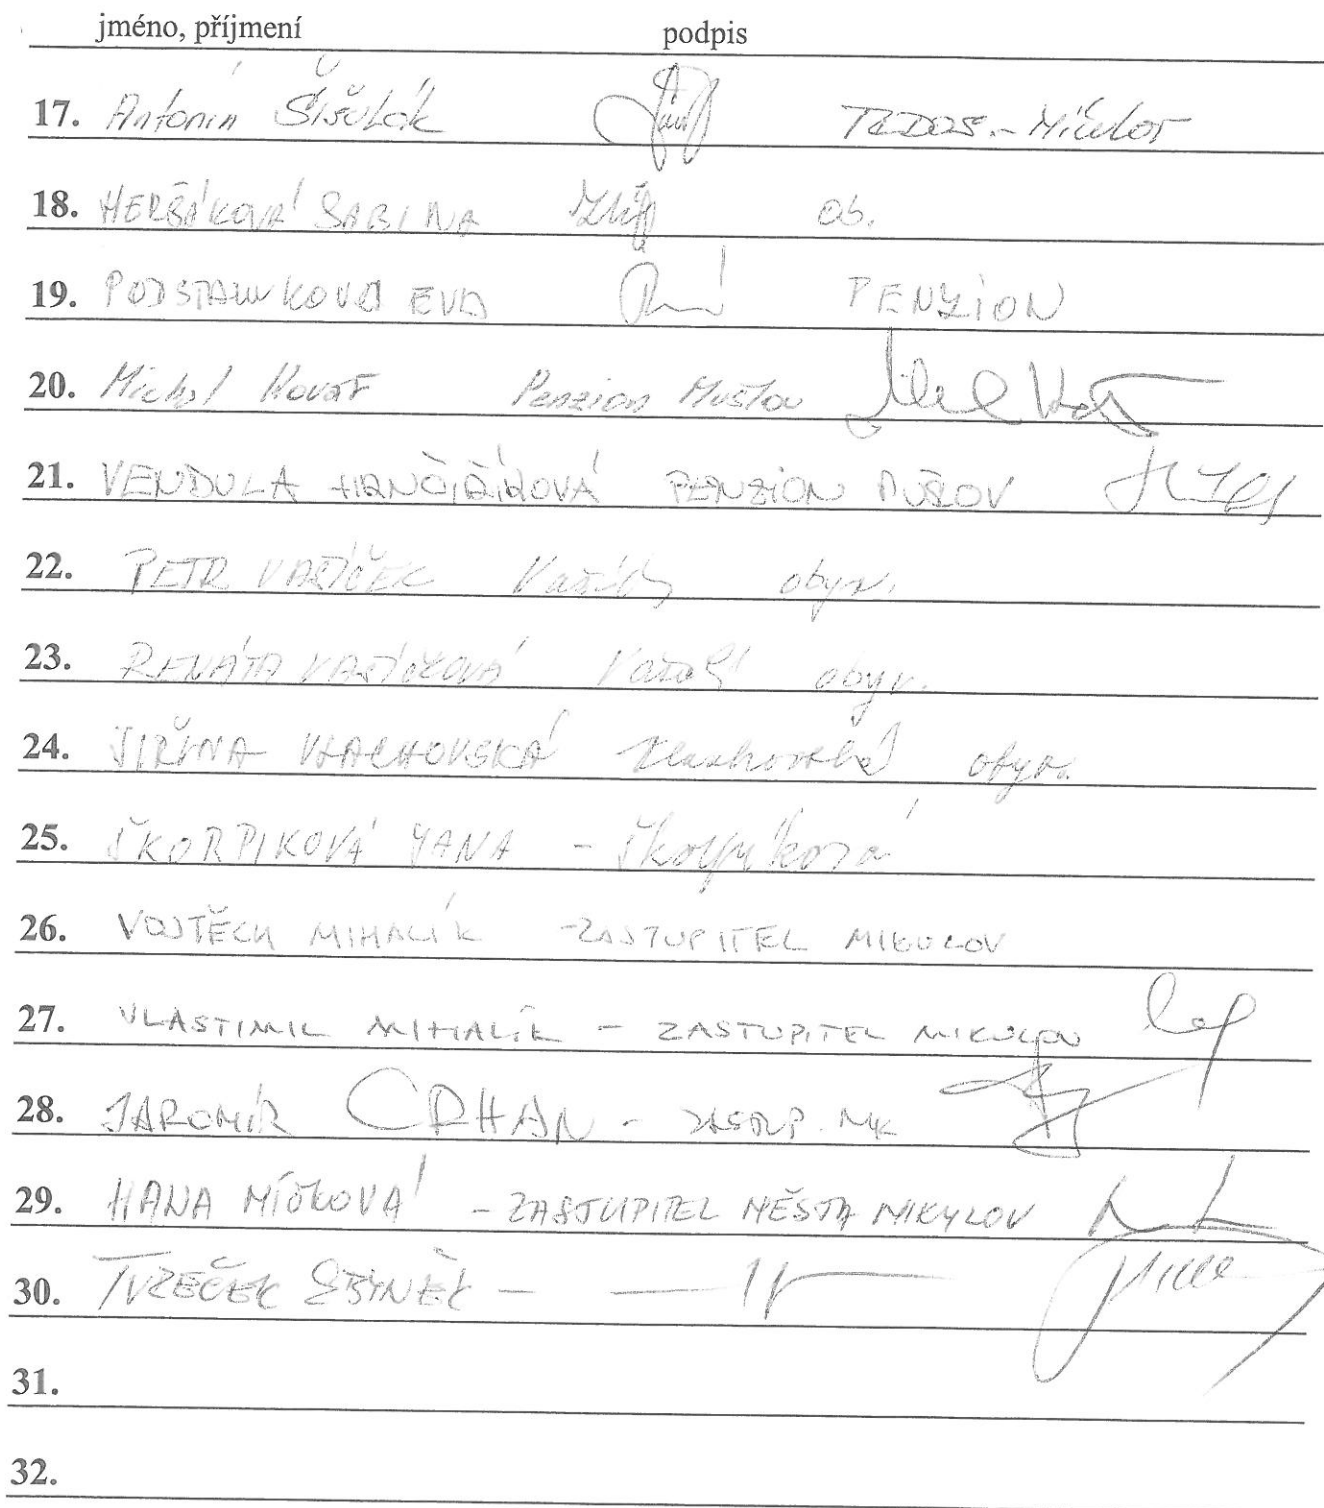 jméno, příjmení podpis
17. Antonín Šišulák TEDOS - Mikulov
18. HERŠÁKOVÁ SABINA ob.
19. EVA PENZION
20. Michal Kovář Penzion Mušlov
21. VENDULA HRNČIŘÍKOVÁ PENZION
22. PETR VAŠÍČEK obyv.
23. RENÁTA VAŠÍČKOVÁ obyv.
24. JIŘINA VLACHOVSKÁ Vlachovská obyv.
25. ŠKORPIKOVÁ JANA - Škorpíková
26. VOJTĚCH MIHALÍK - ZASTUPITEL MIKULOV
27. VLASTIMIL MIHALÍK - ZASTUPITEL MIKULOV
28. JAROMÍR CRHAN - ZASTUP. MK
29. HANA MÍČKOVÁ - ZASTUPITEL MĚSTA MIKULOV
30. ZBYNĚK - — 11 —
31.
32.